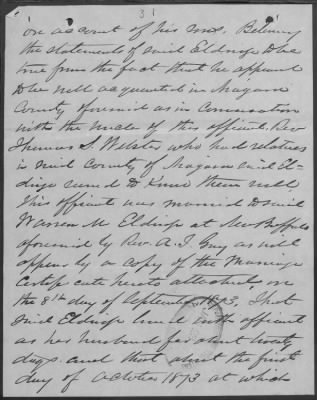 31
on account of his sons. Believing
the statements of said Eldridge to be
true from the fact that he appeared
to be well acquainted in Niagara
County aforesaid as in conversation
with the uncle of this affiant Rev
Thomas S. Webster who had relatives
in said County of Niagara said El-
dridge seemed to know them well
This affiant was married to said
Warren M. Eldridge at New Buffalo
aforesaid by Rev. A. J. Guy as will
appear by a copy of the Marriage
Certificate hereto attached, on
the 8th day of September 1873. That
said Eldridge lived with affiant
as her husband for about twenty
days and that about the first
day of October 1873 at which